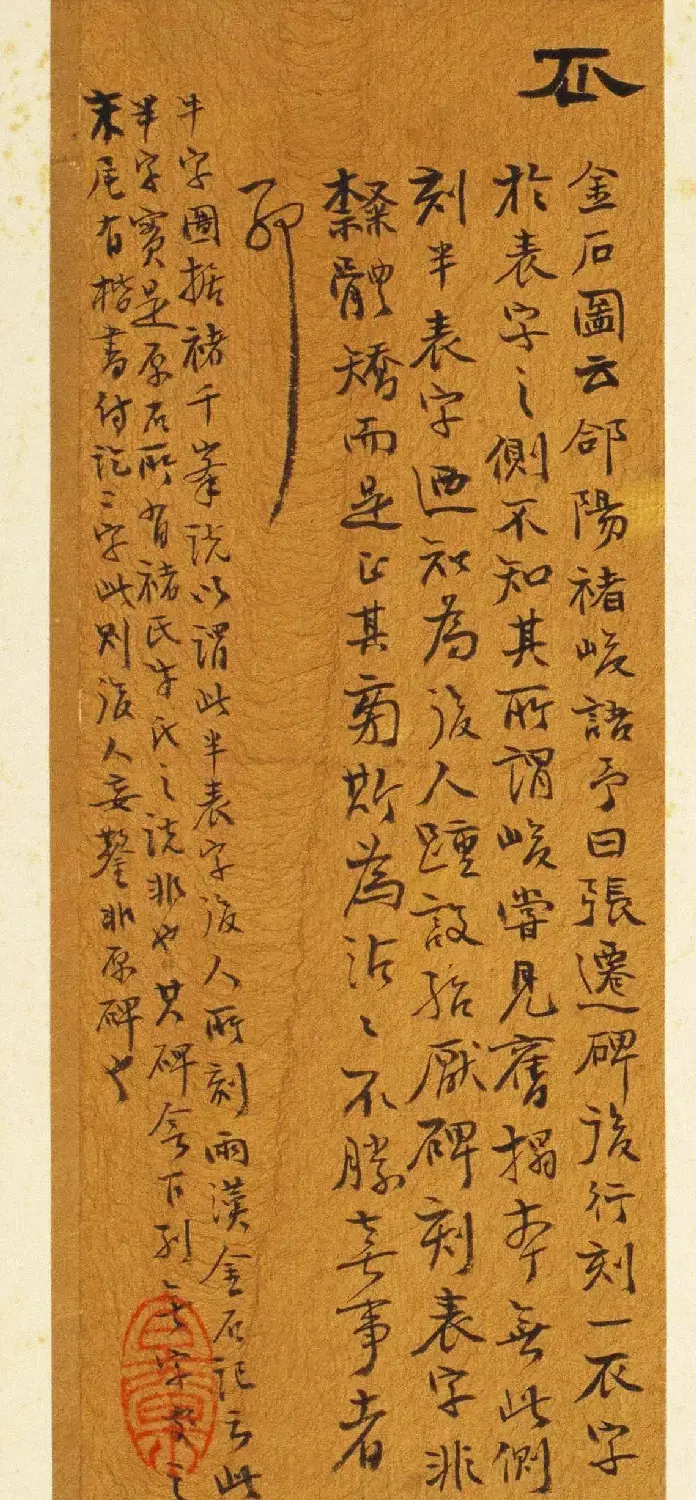 金石圖云郃陽褚峻語予曰張遷碑後行刻一𧘇字
於表字之側不知其所謂峻嘗見舊搨本無此側
刻半表字迺知為後人蹱設殆厭碑刻表字非
隸體矯而是正其菊斯為沾〻不勝喜事者
耶
半字圖據褚千峯說以謂此半表字後人所刻兩漢金石記云此
半字實是原石所有褚氏牛氏之說非也其碑令下列字之
末尾有楷書付訖二字此則後人妄鑿非原碑也